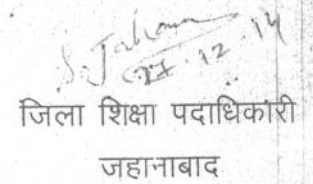 27.12.14
जिला शिक्षा पदाधिकारी
जहानाबाद